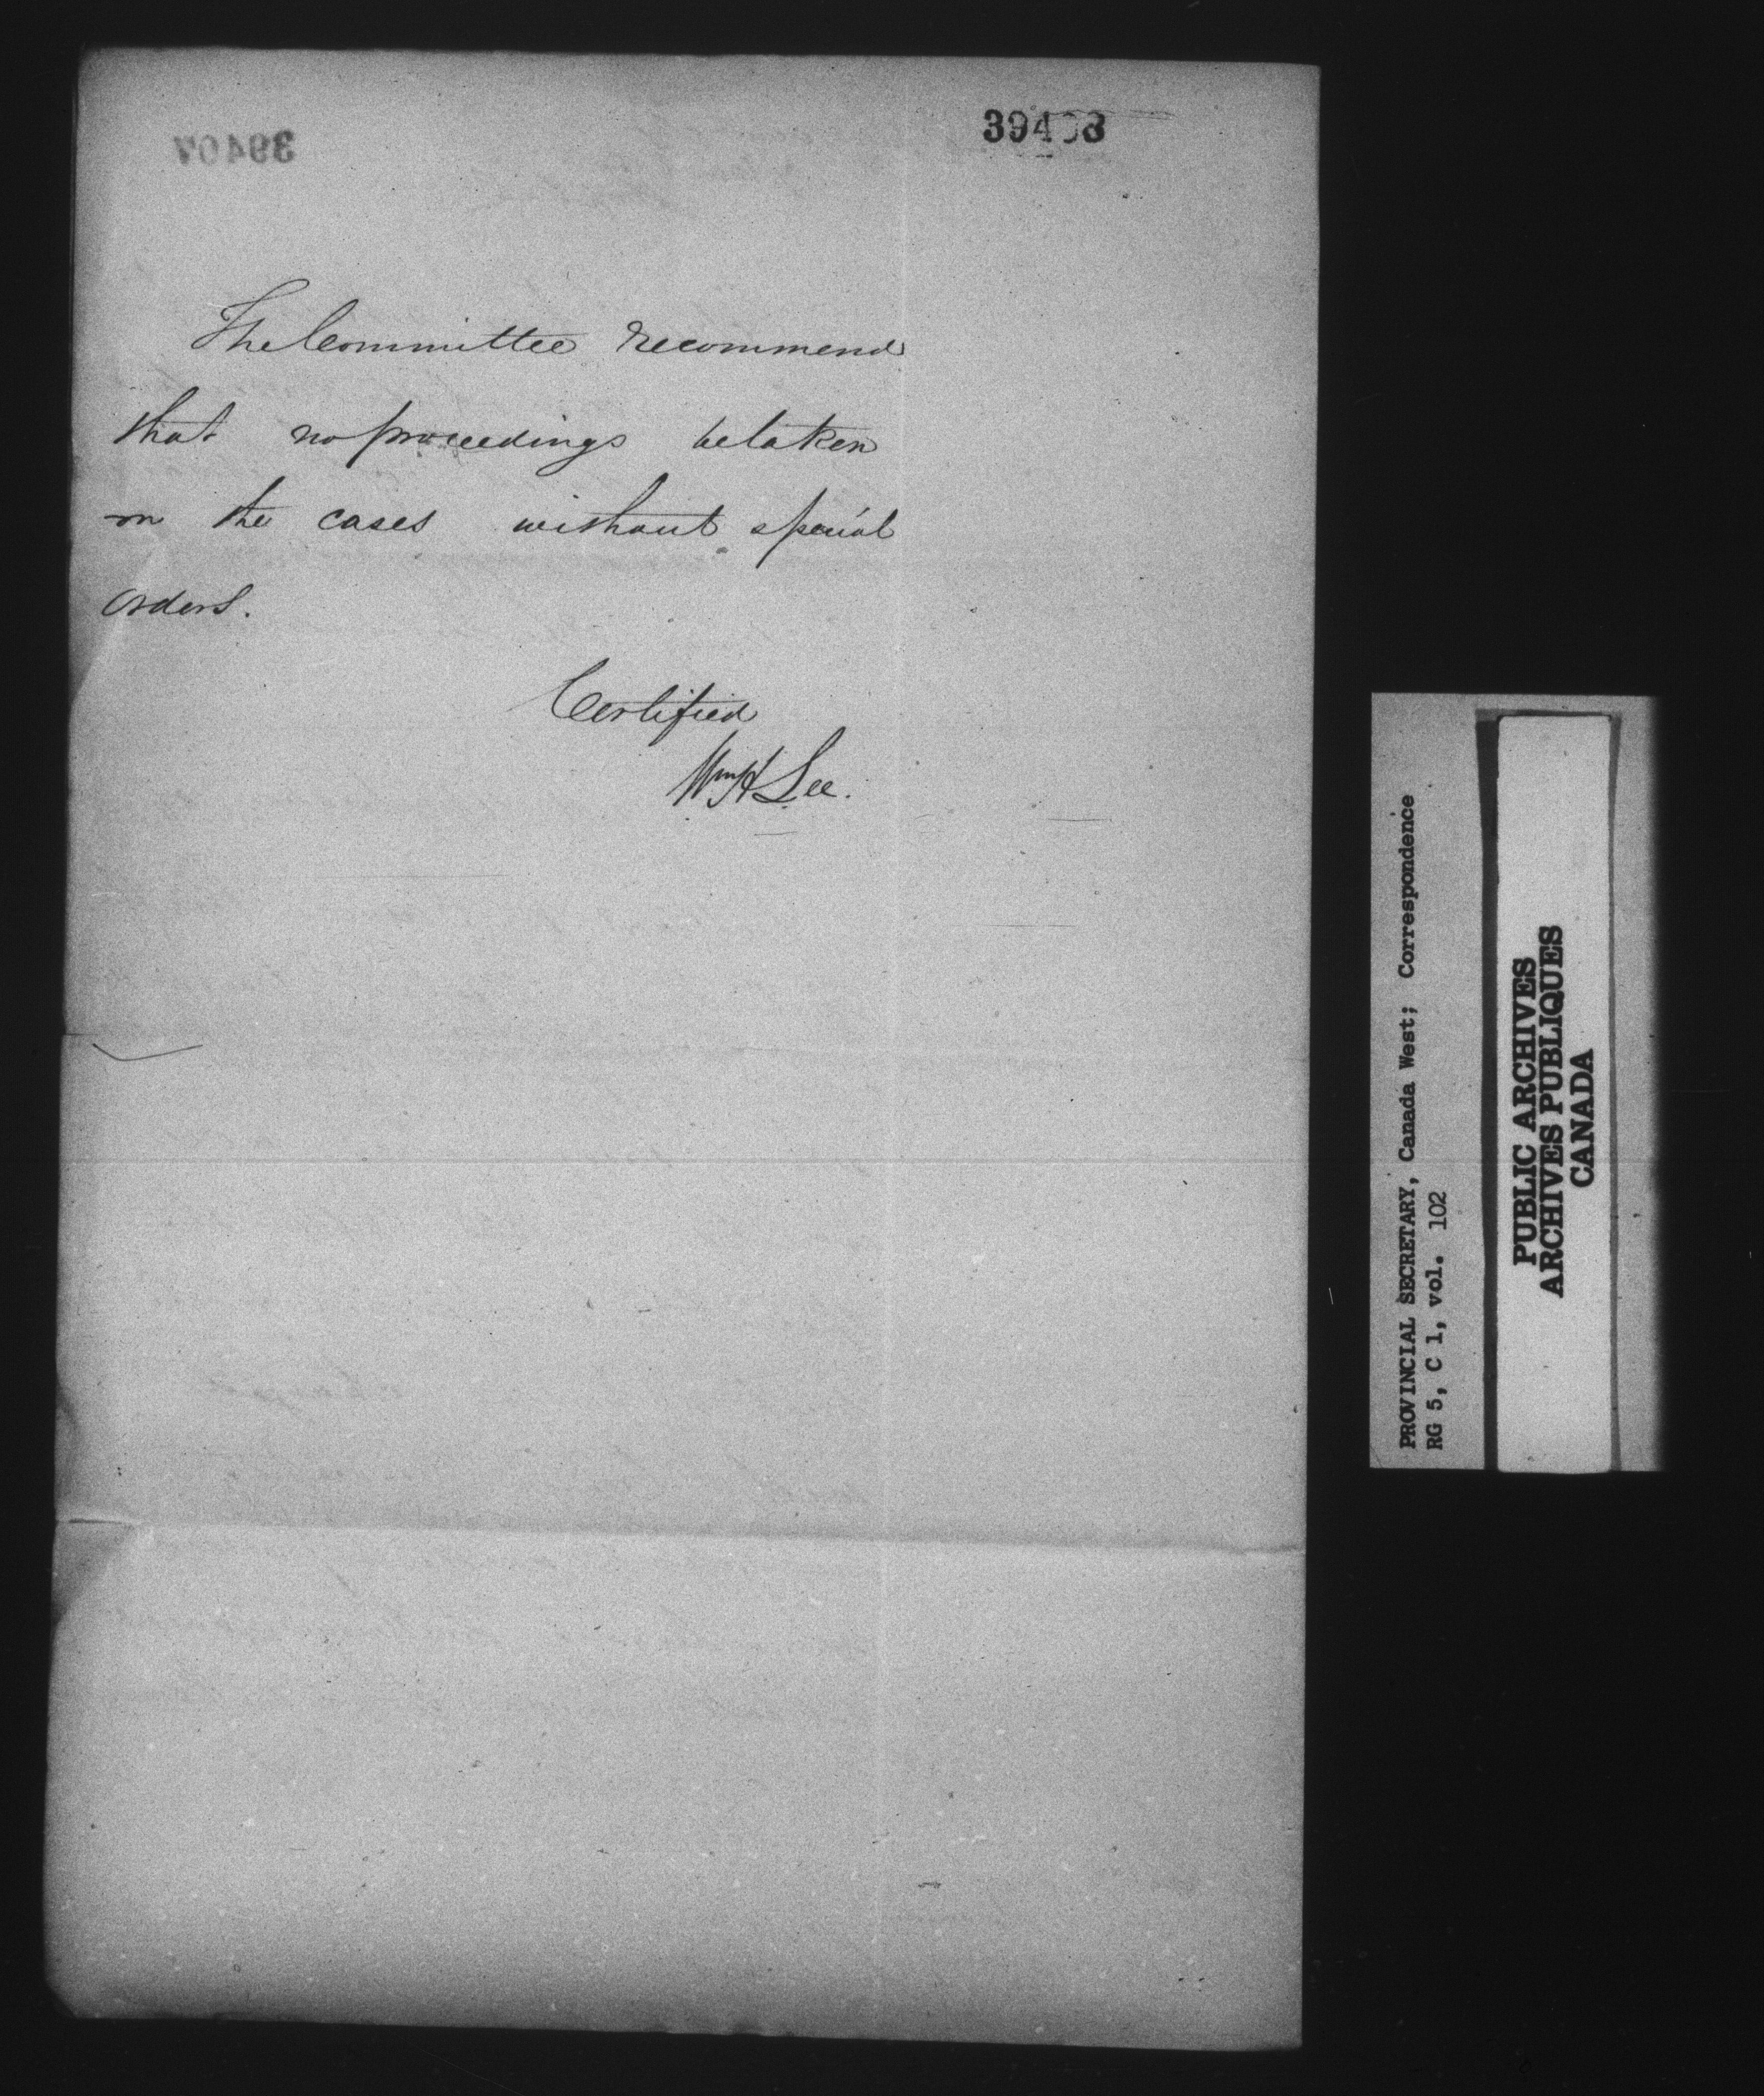 39408
The Committee recommend
that no proceedings be taken
on the cases without special
orders.
Certified
Wm H Lee.
PROVINCIAL SECRETARY, Canada West; Correspondence
RG 5, C 1, vol. 102
PUBLIC ARCHIVES
ARCHIVES PUBLIQUES
CANADA